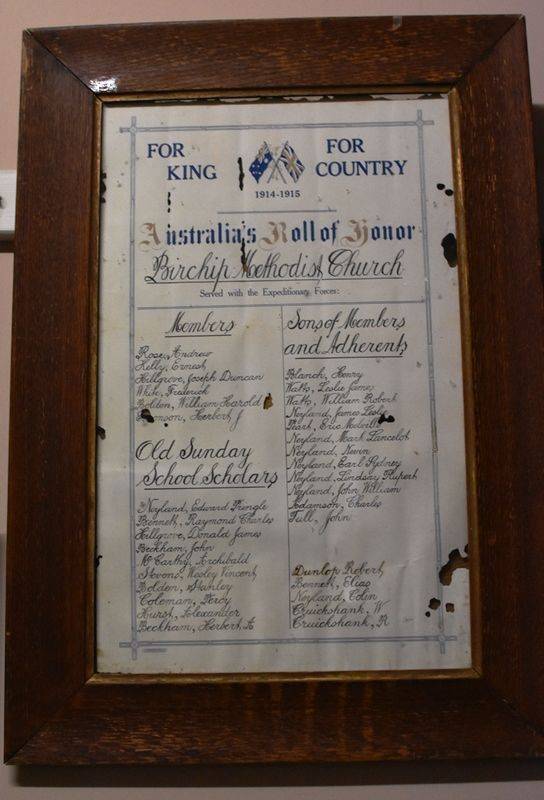 FOR KING
FOR COUNTRY
1914-1915
Australia's Roll of Honor
Birchip Methodist Church
Served with the Expeditionary Forces:
Members
Rose, Andrew
Kelly, Ernest
Hillgrove, Joseph Duncan
White, Frederick
Bolden, William Harold
Herbert, J
Old Sunday
School Scholars
Neyland, Edward Pringle
Bennett, Raymond Charles
Hillgrove, Donald James
Beckham, John
McCarthy, Archibald
Stevens, Wesley Vincent
Bolden, Stanley
Coleman, Percy
Hurst, Alexander
Beckham, Herbert A
Sons of Members
and Adherents
Blanch, Henry
Watts, Leslie James
Watts, William Robert
Neyland, James Leslie
Peart, Eric Melville
Neyland, Mark Lancelot
Neyland, Nevin
Neyland, Earl Sydney
Neyland, Lindsay Rupert
Neyland, John William
Adamson, Charles
Tull, John
Dunlop Robert,
Bennett, Elias
Neyland, Colin
Cruickshank, W
Cruickshank, R